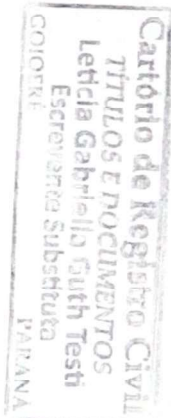 Cartório de Registro Civil
TÍTULOS E DOCUMENTOS
Leticia Gabriello Guth Testi
Escrevente Substituta
GOIOERÊ PARANÁ